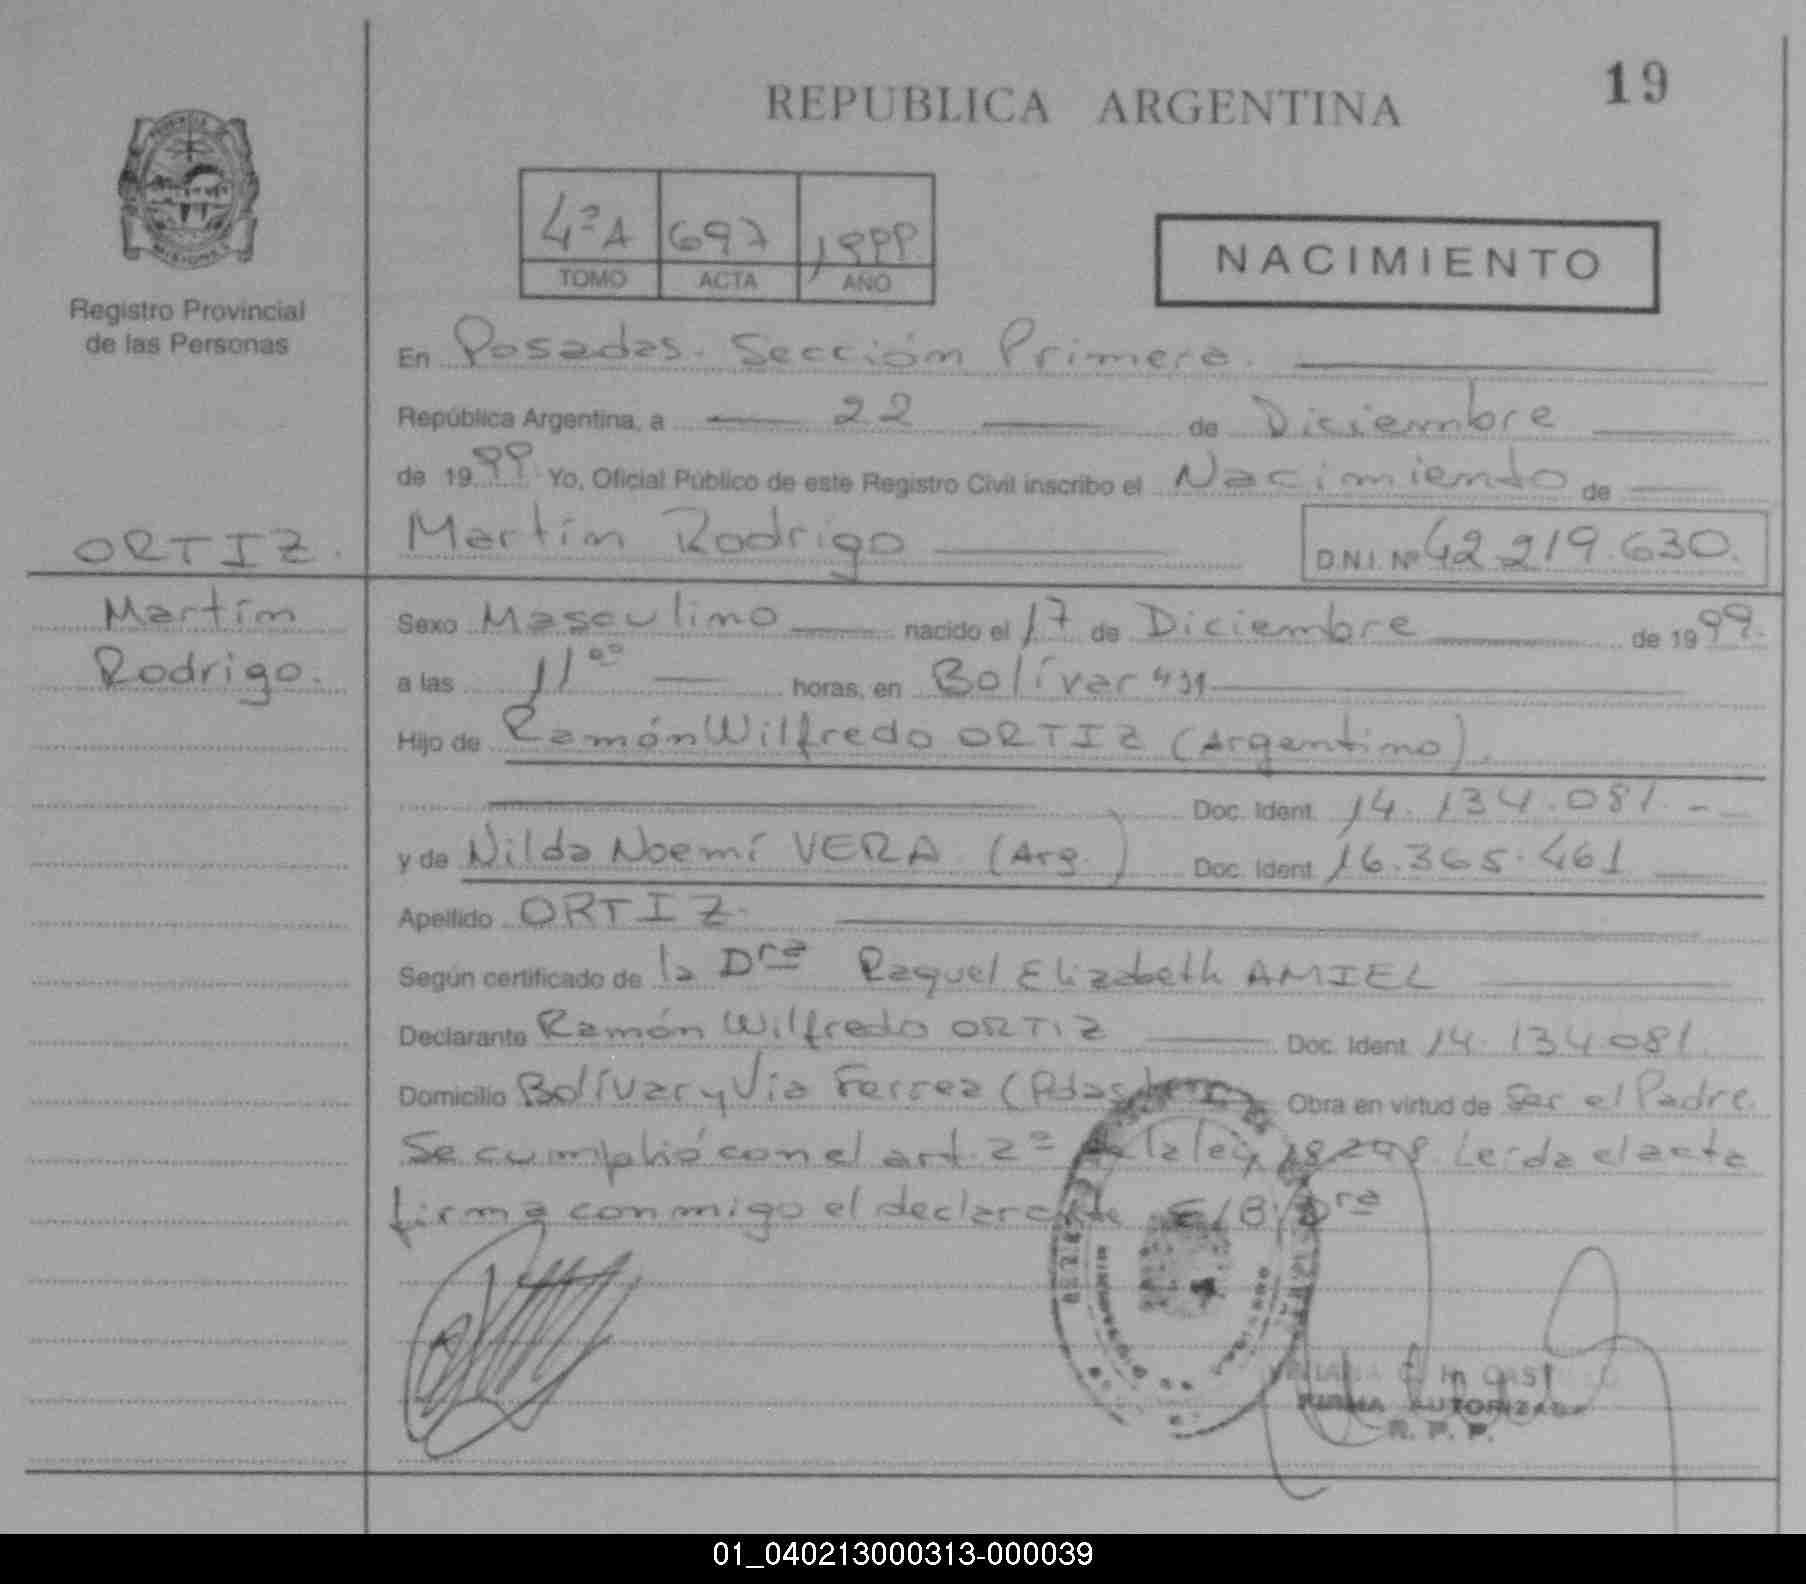 19
REPUBLICA ARGENTINA
PROVINCIA DE
MISIONES
Registro Provincial
de las Personas
4ª A 697 1999
TOMO ACTA AÑO
NACIMIENTO
En Posadas. Sección Primera.
República Argentina, a 22 de Diciembre
de 1999 Yo, Oficial Público de este Registro Civil inscribo el Nacimiento de
ORTIZ. Martín Rodrigo D.N.I. Nº 42.219.630.
Martín
Rodrigo.
Sexo Masculino nacido el 17 de Diciembre de 1999.
a las 11°° horas, en Bolívar
Hijo de Ramón Wilfredo ORTIZ (Argentino).
Doc. Ident. 14.134.081.-
y de Nilda Noemí VERA (Arg.) Doc. Ident. 16.365.461
Apellido ORTIZ.
Según certificado de la Drª Raquel Elizabeth AMIEL
Declarante Ramón Wilfredo ORTIZ Doc. Ident. 14.134.081.
Domicilio Bolívar y Vía Ferrea (Pdas Obra en virtud de Ser el Padre.
Se cumplió con el art. 2º de la ley 18298 Leída el acta
firma conmigo el declarante E/B: Drª
FIRMA AUTORIZADA
R. P. P.
01_040213000313-000039